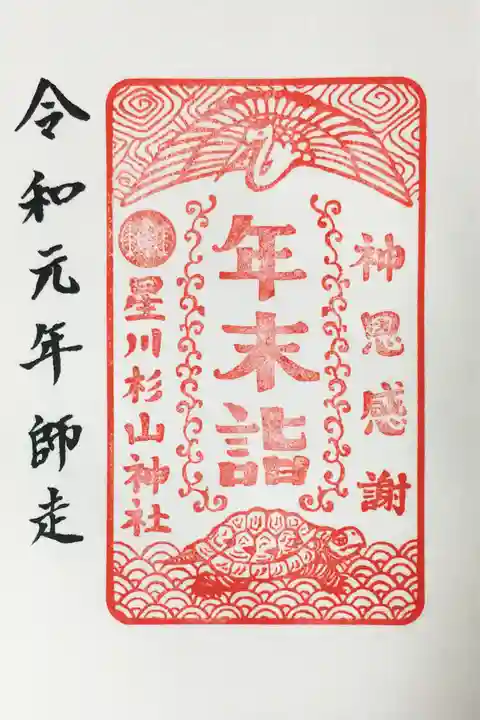 神恩感謝
年末詣
星川杉山神社
令和元年師走